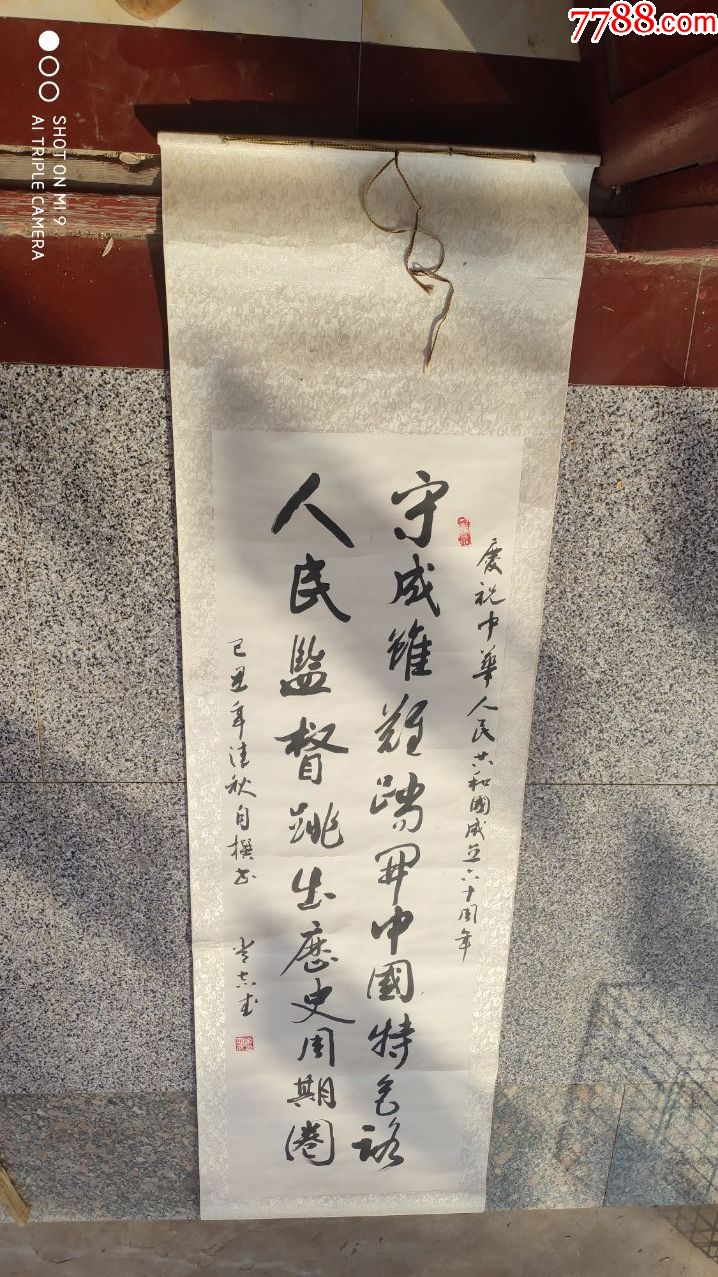 7788.com
SHOT ON MI 9
AI TRIPLE CAMERA
慶祝中華人民共和國成立六十周年
守成雖難踏開中國特色路
人民監督跳出歷史周期圈
己丑年清秋自撰书